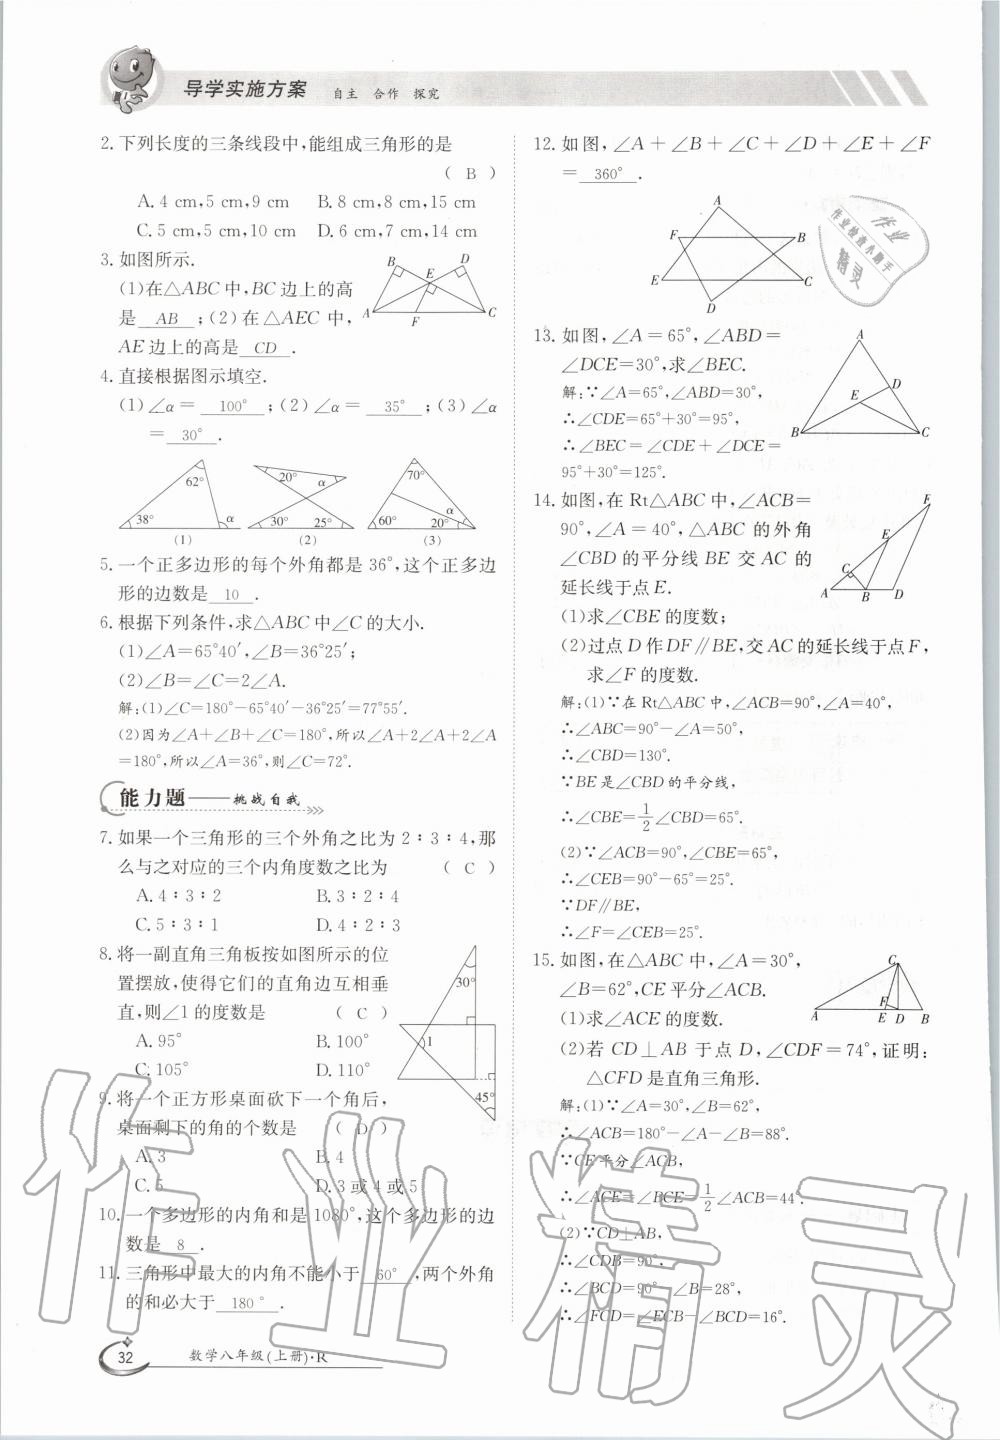 导学实施方案 自主 合作 探究
2. 下列长度的三条线段中,能组成三角形的是
( B )
A. 4 cm,5 cm,9 cm B. 8 cm,8 cm,15 cm
C. 5 cm,5 cm,10 cm D. 6 cm,7 cm,14 cm
3. 如图所示.
(1)在△ABC中,BC边上的高
是 AB ;(2)在△AEC中,
AE边上的高是 CD .
B D E A F C
4. 直接根据图示填空.
(1)∠α= 100° ;(2)∠α= 35° ;(3)∠α
= 30° .
62° 38° α
20° α 30° 25°
70° 60° 20° α
(1) (2) (3)
5. 一个正多边形的每个外角都是36°,这个正多边
形的边数是 10 .
6. 根据下列条件,求△ABC中∠C的大小.
(1)∠A=65°40′,∠B=36°25′;
(2)∠B=∠C=2∠A.
解:(1)∠C=180°-65°40′-36°25′=77°55′.
(2)因为∠A+∠B+∠C=180°,所以∠A+2∠A+2∠A
=180°,所以∠A=36°,则∠C=72°.
能力题——挑战自我
7. 如果一个三角形的三个外角之比为2∶3∶4,那
么与之对应的三个内角度数之比为 ( C )
A. 4∶3∶2 B. 3∶2∶4
C. 5∶3∶1 D. 4∶2∶3
8. 将一副直角三角板按如图所示的位
置摆放,使得它们的直角边互相垂
直,则∠1的度数是 ( C )
A. 95° B. 100°
C. 105° D. 110°
30° 1 45°
9. 将一个正方形桌面砍下一个角后,
桌面剩下的角的个数是 ( D )
A. 3 B. 4
C. 5 D. 3或4或5
10. 一个多边形的内角和是1080°,这个多边形的边
数是 8 .
11. 三角形中最大的内角不能小于 60° ,两个外角
的和必大于 180° .
32 数学八年级(上册)·R
12. 如图,∠A+∠B+∠C+∠D+∠E+∠F
= 360° .
A F B E C D
作业
作业检查小助手
精灵
13. 如图,∠A=65°,∠ABD=
∠DCE=30°,求∠BEC.
解:∵∠A=65°,∠ABD=30°,
∴∠CDE=65°+30°=95°,
∴∠BEC=∠CDE+∠DCE=
95°+30°=125°.
A D E B C
14. 如图,在Rt△ABC中,∠ACB=
90°,∠A=40°,△ABC的外角
∠CBD的平分线BE交AC的
延长线于点E.
(1)求∠CBE的度数;
(2)过点D作DF∥BE,交AC的延长线于点F,
求∠F的度数.
F E C A B D
解:(1)∵在Rt△ABC中,∠ACB=90°,∠A=40°,
∴∠ABC=90°-∠A=50°,
∴∠CBD=130°.
∵BE是∠CBD的平分线,
∴∠CBE=1/2∠CBD=65°.
(2)∵∠ACB=90°,∠CBE=65°,
∴∠CEB=90°-65°=25°.
∵DF∥BE,
∴∠F=∠CEB=25°.
15. 如图,在△ABC中,∠A=30°,
∠B=62°,CE平分∠ACB.
(1)求∠ACE的度数.
(2)若CD⊥AB于点D,∠CDF=74°,证明:
△CFD是直角三角形.
C F A E D B
解:(1)∵∠A=30°,∠B=62°,
∴∠ACB=180°-∠A-∠B=88°.
∵CE平分∠ACB,
∴∠ACE=∠BCE=1/2∠ACB=44°.
(2)∵CD⊥AB,
∴∠CDB=90°,
∴∠BCD=90°-∠B=28°,
∴∠FCD=∠ECB-∠BCD=16°.
作业精灵